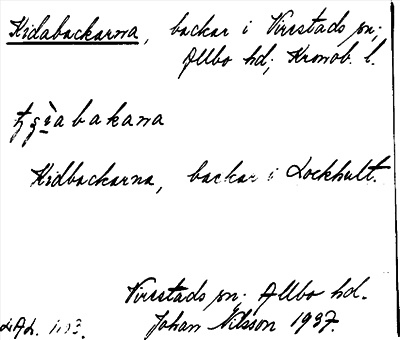 Kidabackarna, backar i Virestads sn;
Allbo hd; Kronob. l.
bakana
Kidbackarna, backar i Lockhult.
Virestads sn; Allbo hd.
Johan Nilsson 1937.